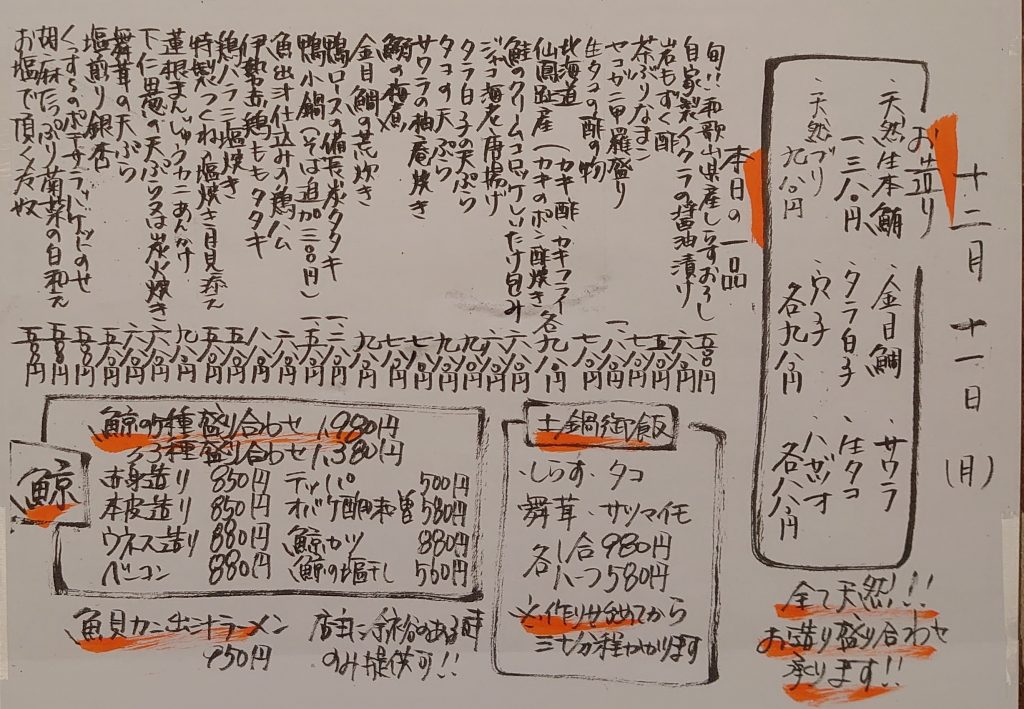 十二月十一日(月)
お造り
・天然生本鮪 一、三八〇円
・金目鯛
・サワラ
・天然ブリ 九八〇円
・タラ白子
・穴子 各九八〇円
・生タコ
・ハガツオ 各八八〇円
全て天然!!
お造り盛り合わせ
承ります!!
本日の一品
旬!!和歌山県産しらすおろし 五八〇円
自家製イクラの醤油漬け
岩もずく酢
茶ぶりなまこ
セコガニ甲羅盛り
生タコの酢の物
北海道仙鳳趾産(カキ酢・カキフライ・カキのポン酢焼き 各九八〇円
鮭のクリームコロッケしいたけ包み
ジャコ海老唐揚げ
タラ白子の天ぷら
タコの天ぷら
サワラの柚庵焼き
鰯の梅煮
金目鯛の荒炊き
鴨ロースの備長炭タタキ
鴨小鍋(そば追加三三〇円)
魚出汁仕込みの鶏ハム
伊勢赤鶏ももタタキ
鶏ハラミ塩焼き
特製つくね塩焼き月見添え
蓮根まんじゅうカニあんかけ
下仁田葱の天ぷら又は炭火焼き
舞茸の天ぷら
塩煎り銀杏
くんすぃ～のポテサラバケットのせ
胡麻たっぷり菊菜の白和え
お塩で頂く冷奴
鯨
鯨の5種盛り合わせ 1,980円
〃3種盛り合わせ 1,380円
赤身造り 850円
本皮造り 850円
ウネス造り 880円
ベーコン 880円
テッパ 500円
オバケ酢味噌 580円
鯨カツ 880円
鯨の塩干し 560円
魚貝カニ出汁ラーメン
950円
店主に余裕のある時
のみ提供可!!
土鍋御飯
・しらす・タコ
・舞茸・サツマイモ
各一合 980円
各ハーフ 580円
※作り始めてから
三十分程かかります